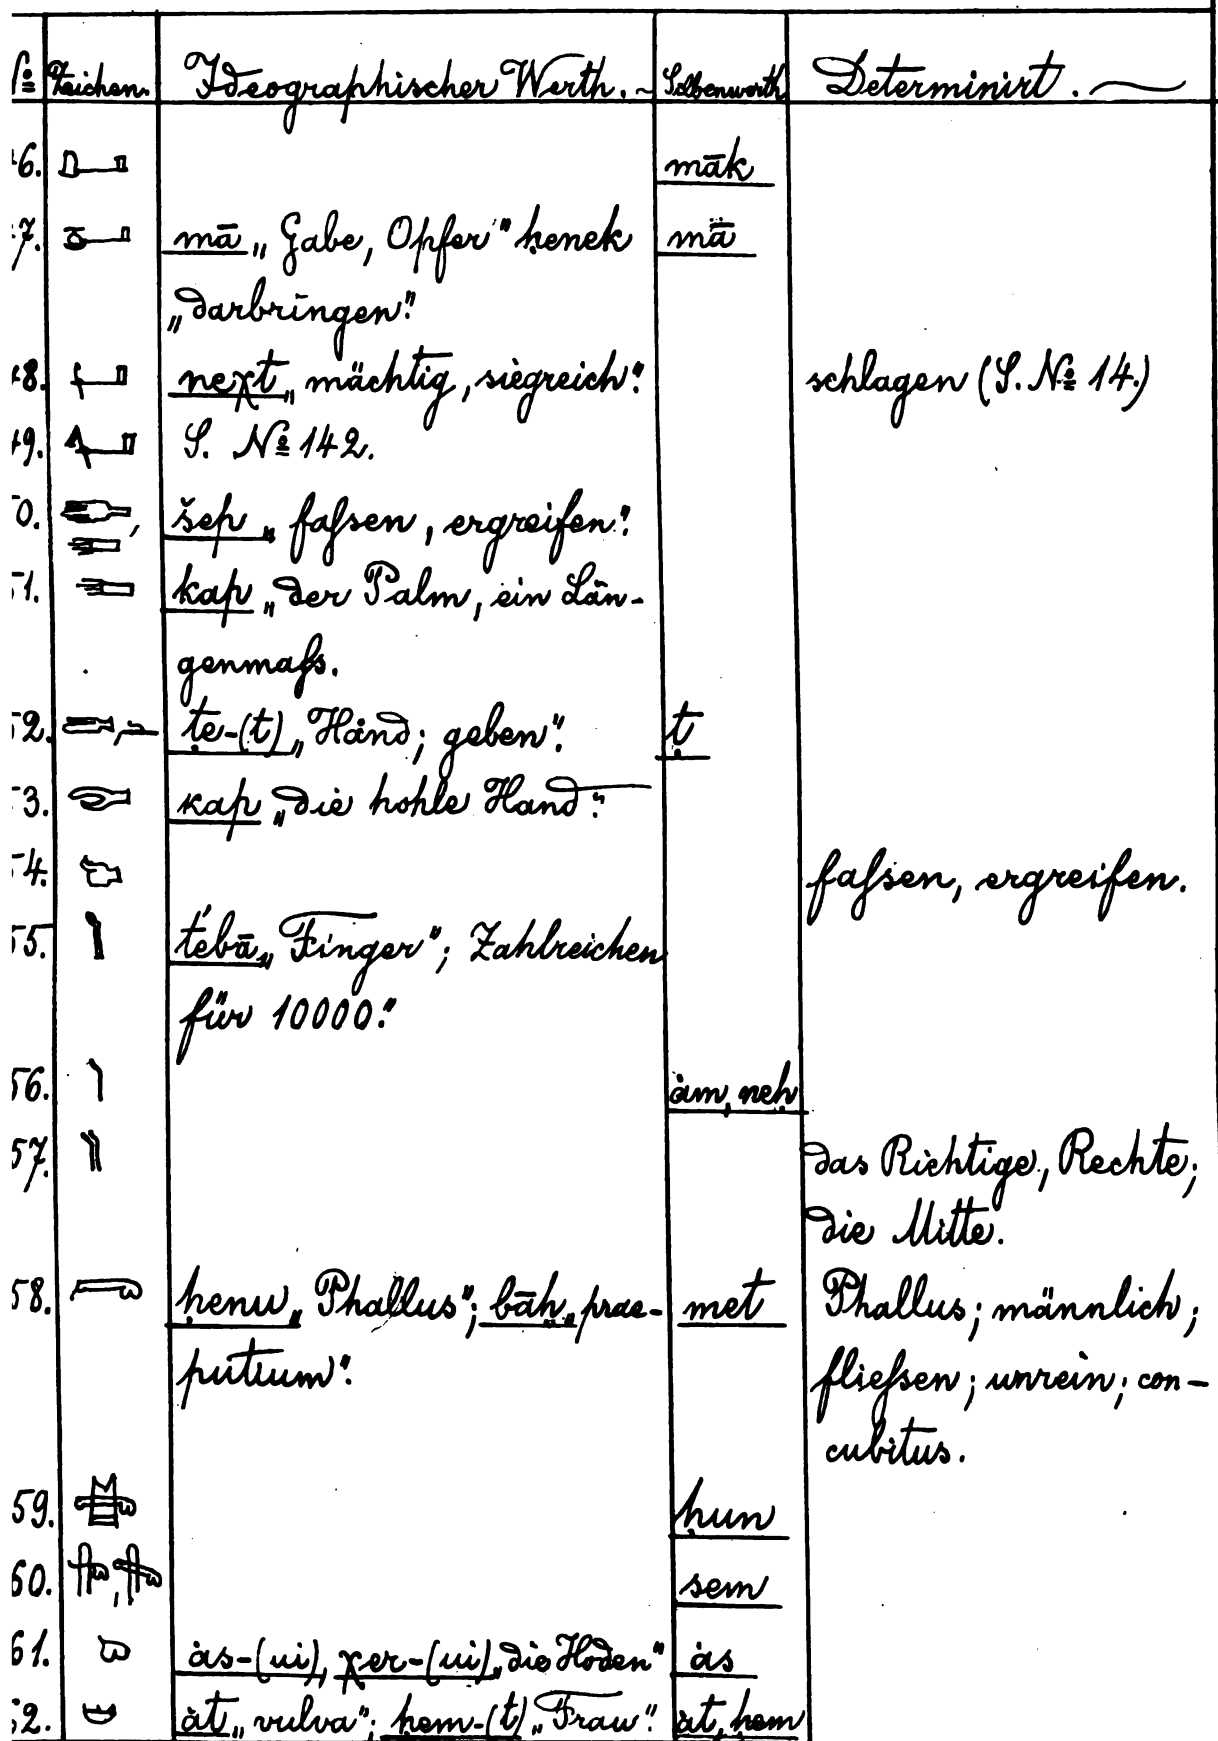 № Zeichen. Ideographischer Werth. Silbenwerth Determinirt.
46. māk
47. mā „Gabe, Opfer" ḥenek mā
„darbringen".
48. neχt „mächtig, siegreich". schlagen (S. № 14.)
49. S. № 142.
50. šep „faſsen, ergreifen".
51. kap „der Palm, ein Län-
genmaſs.
52. ṭe-(t) „Hand; geben". ṭ
53. kap „die hohle Hand".
54. faſsen, ergreifen.
55. t́ebā „Finger"; Zahlzeichen
für 10000."
56. ȧm, neh
57. das Richtige, Rechte;
die Mitte.
58. ḥenu „Phallus"; bāḥ „prae- met Phallus; männlich;
putium". flieſsen; unrein; con-
cubitus.
59. ḥun
60. sem
61. ȧs-(ui), χer-(ui) „die Hoden" ȧs
62. ȧt „vulva"; ḥem-(t) „Frau". ȧt, ḥem